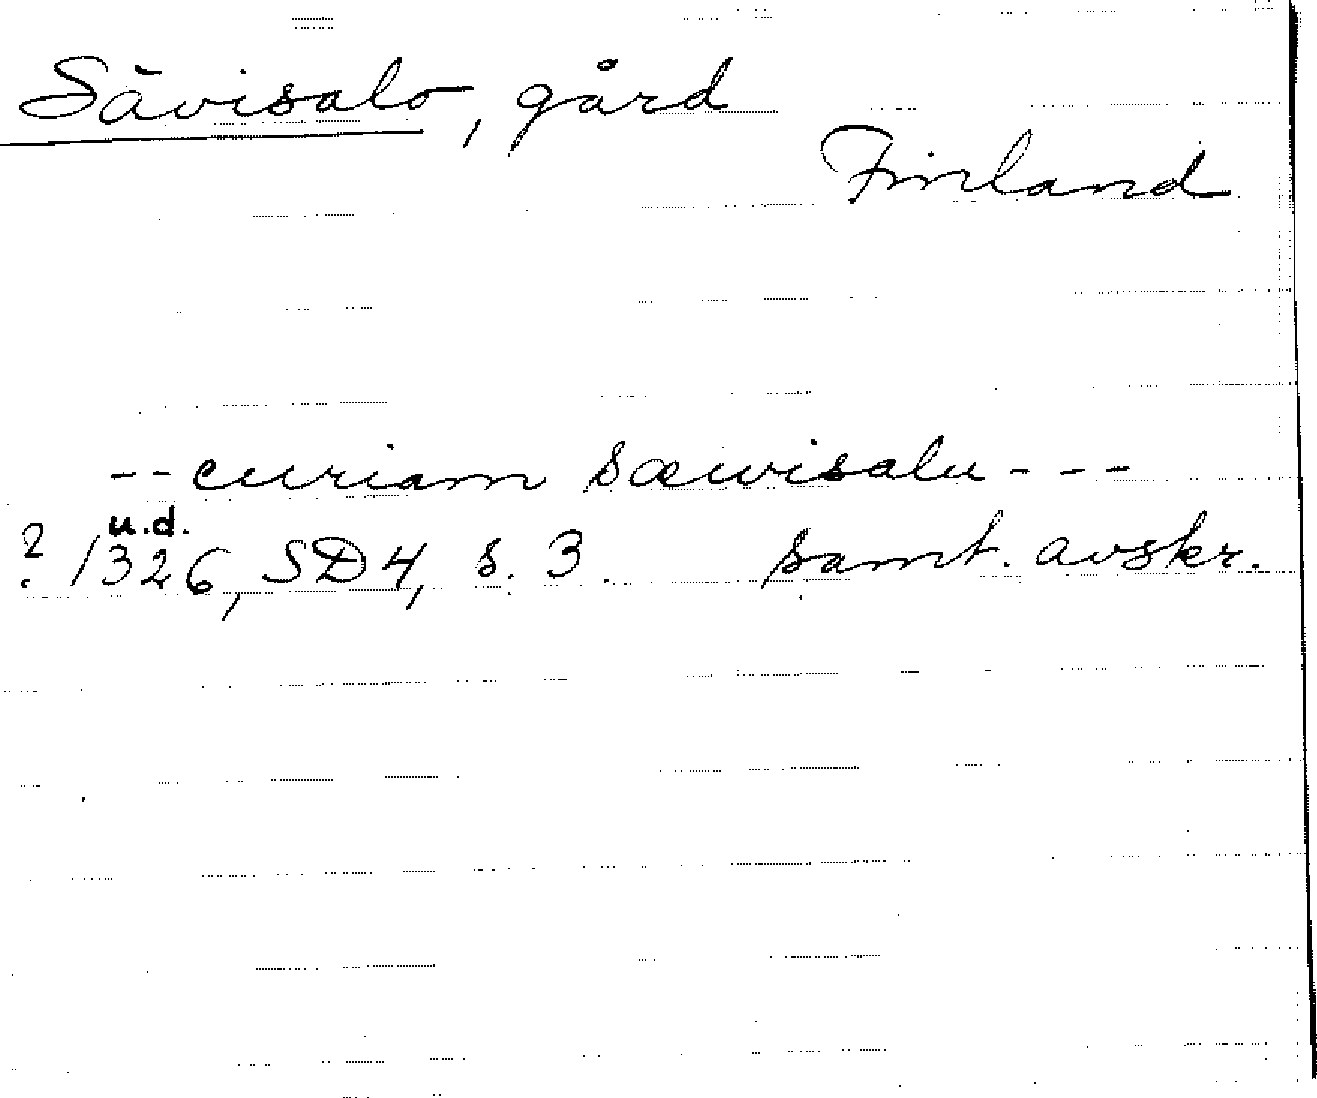 Sävisalo, gård
Finland
-- curiam sæwisalu ---
u.d.
? 1326, SD4, s. 3 samt. avskr.